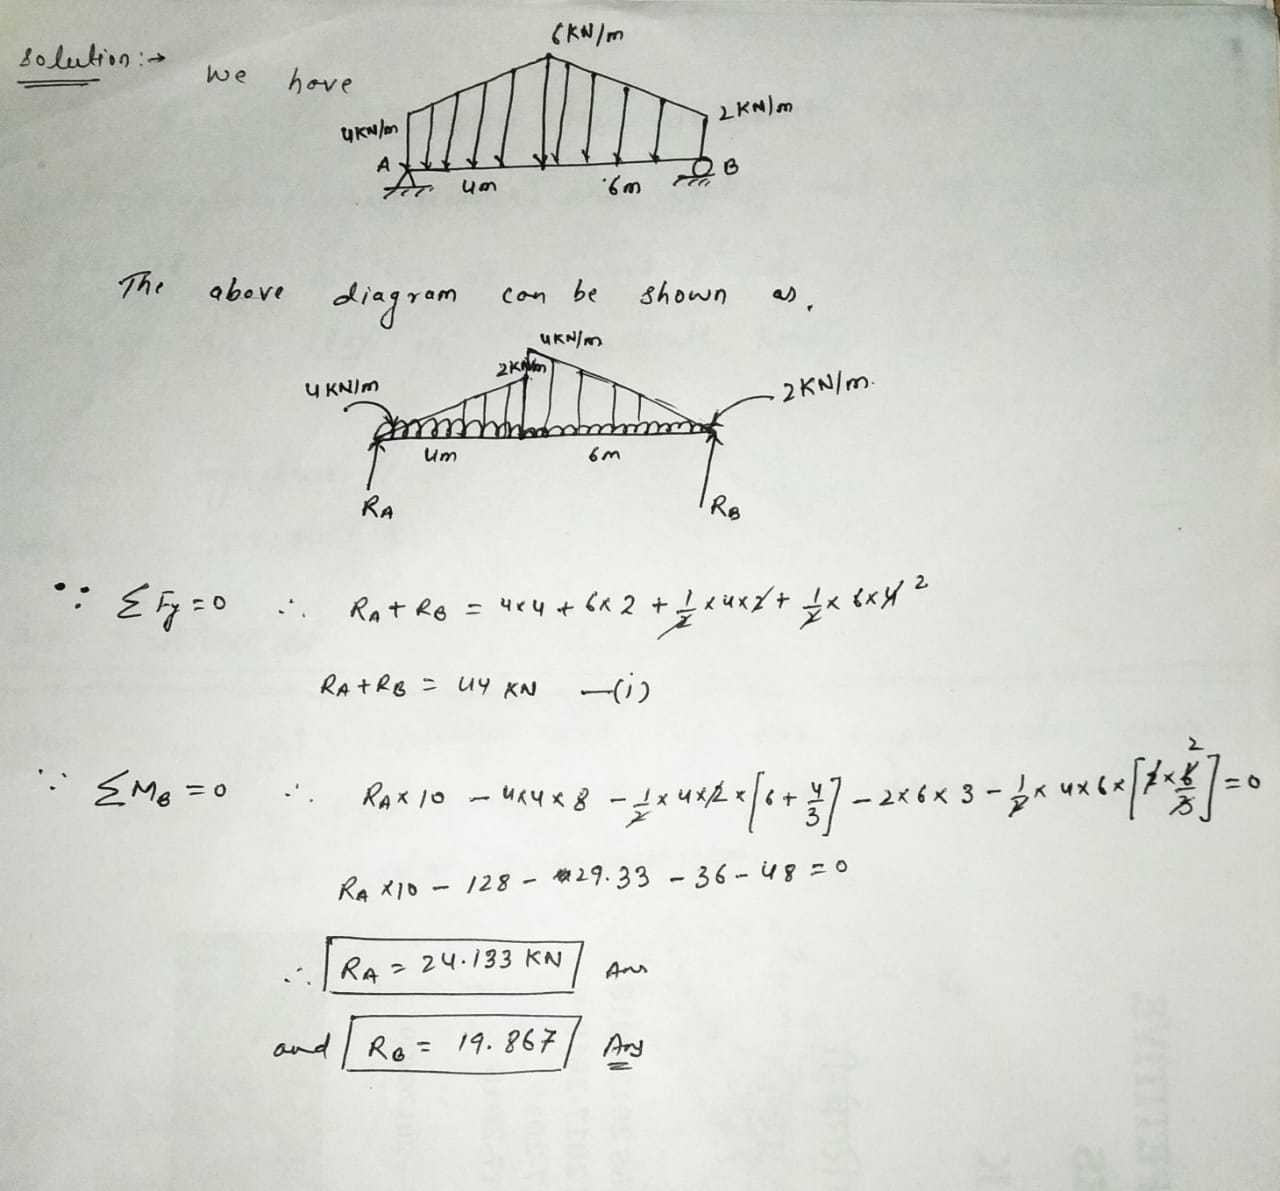 Solution :→ we have
6KN/m
4KN/m
2KN/m
A
B
4m
6m
The above diagram can be shown as,
4KN/m
2KN/m
4KN/m
2KN/m.
4m
6m
RA
RB
∵ ΣFy=0 ∴ RA+RB = 4×4 + 6×2 + 1/2 ×4×2 + 1/2 × 6×4 2
RA+RB = 44 KN —(i)
∵ ΣMB=0 ∴ RA×10 - 4×4×8 - 1/2 ×4×2 ×[6+ 4/3] - 2×6×3 - 1/2 × 4×6×[2×6/3] 2 =0
RA×10 - 128 - 29.33 - 36 - 48 = 0
∴ RA = 24.133 KN Ans
and RB = 19.867 Ans